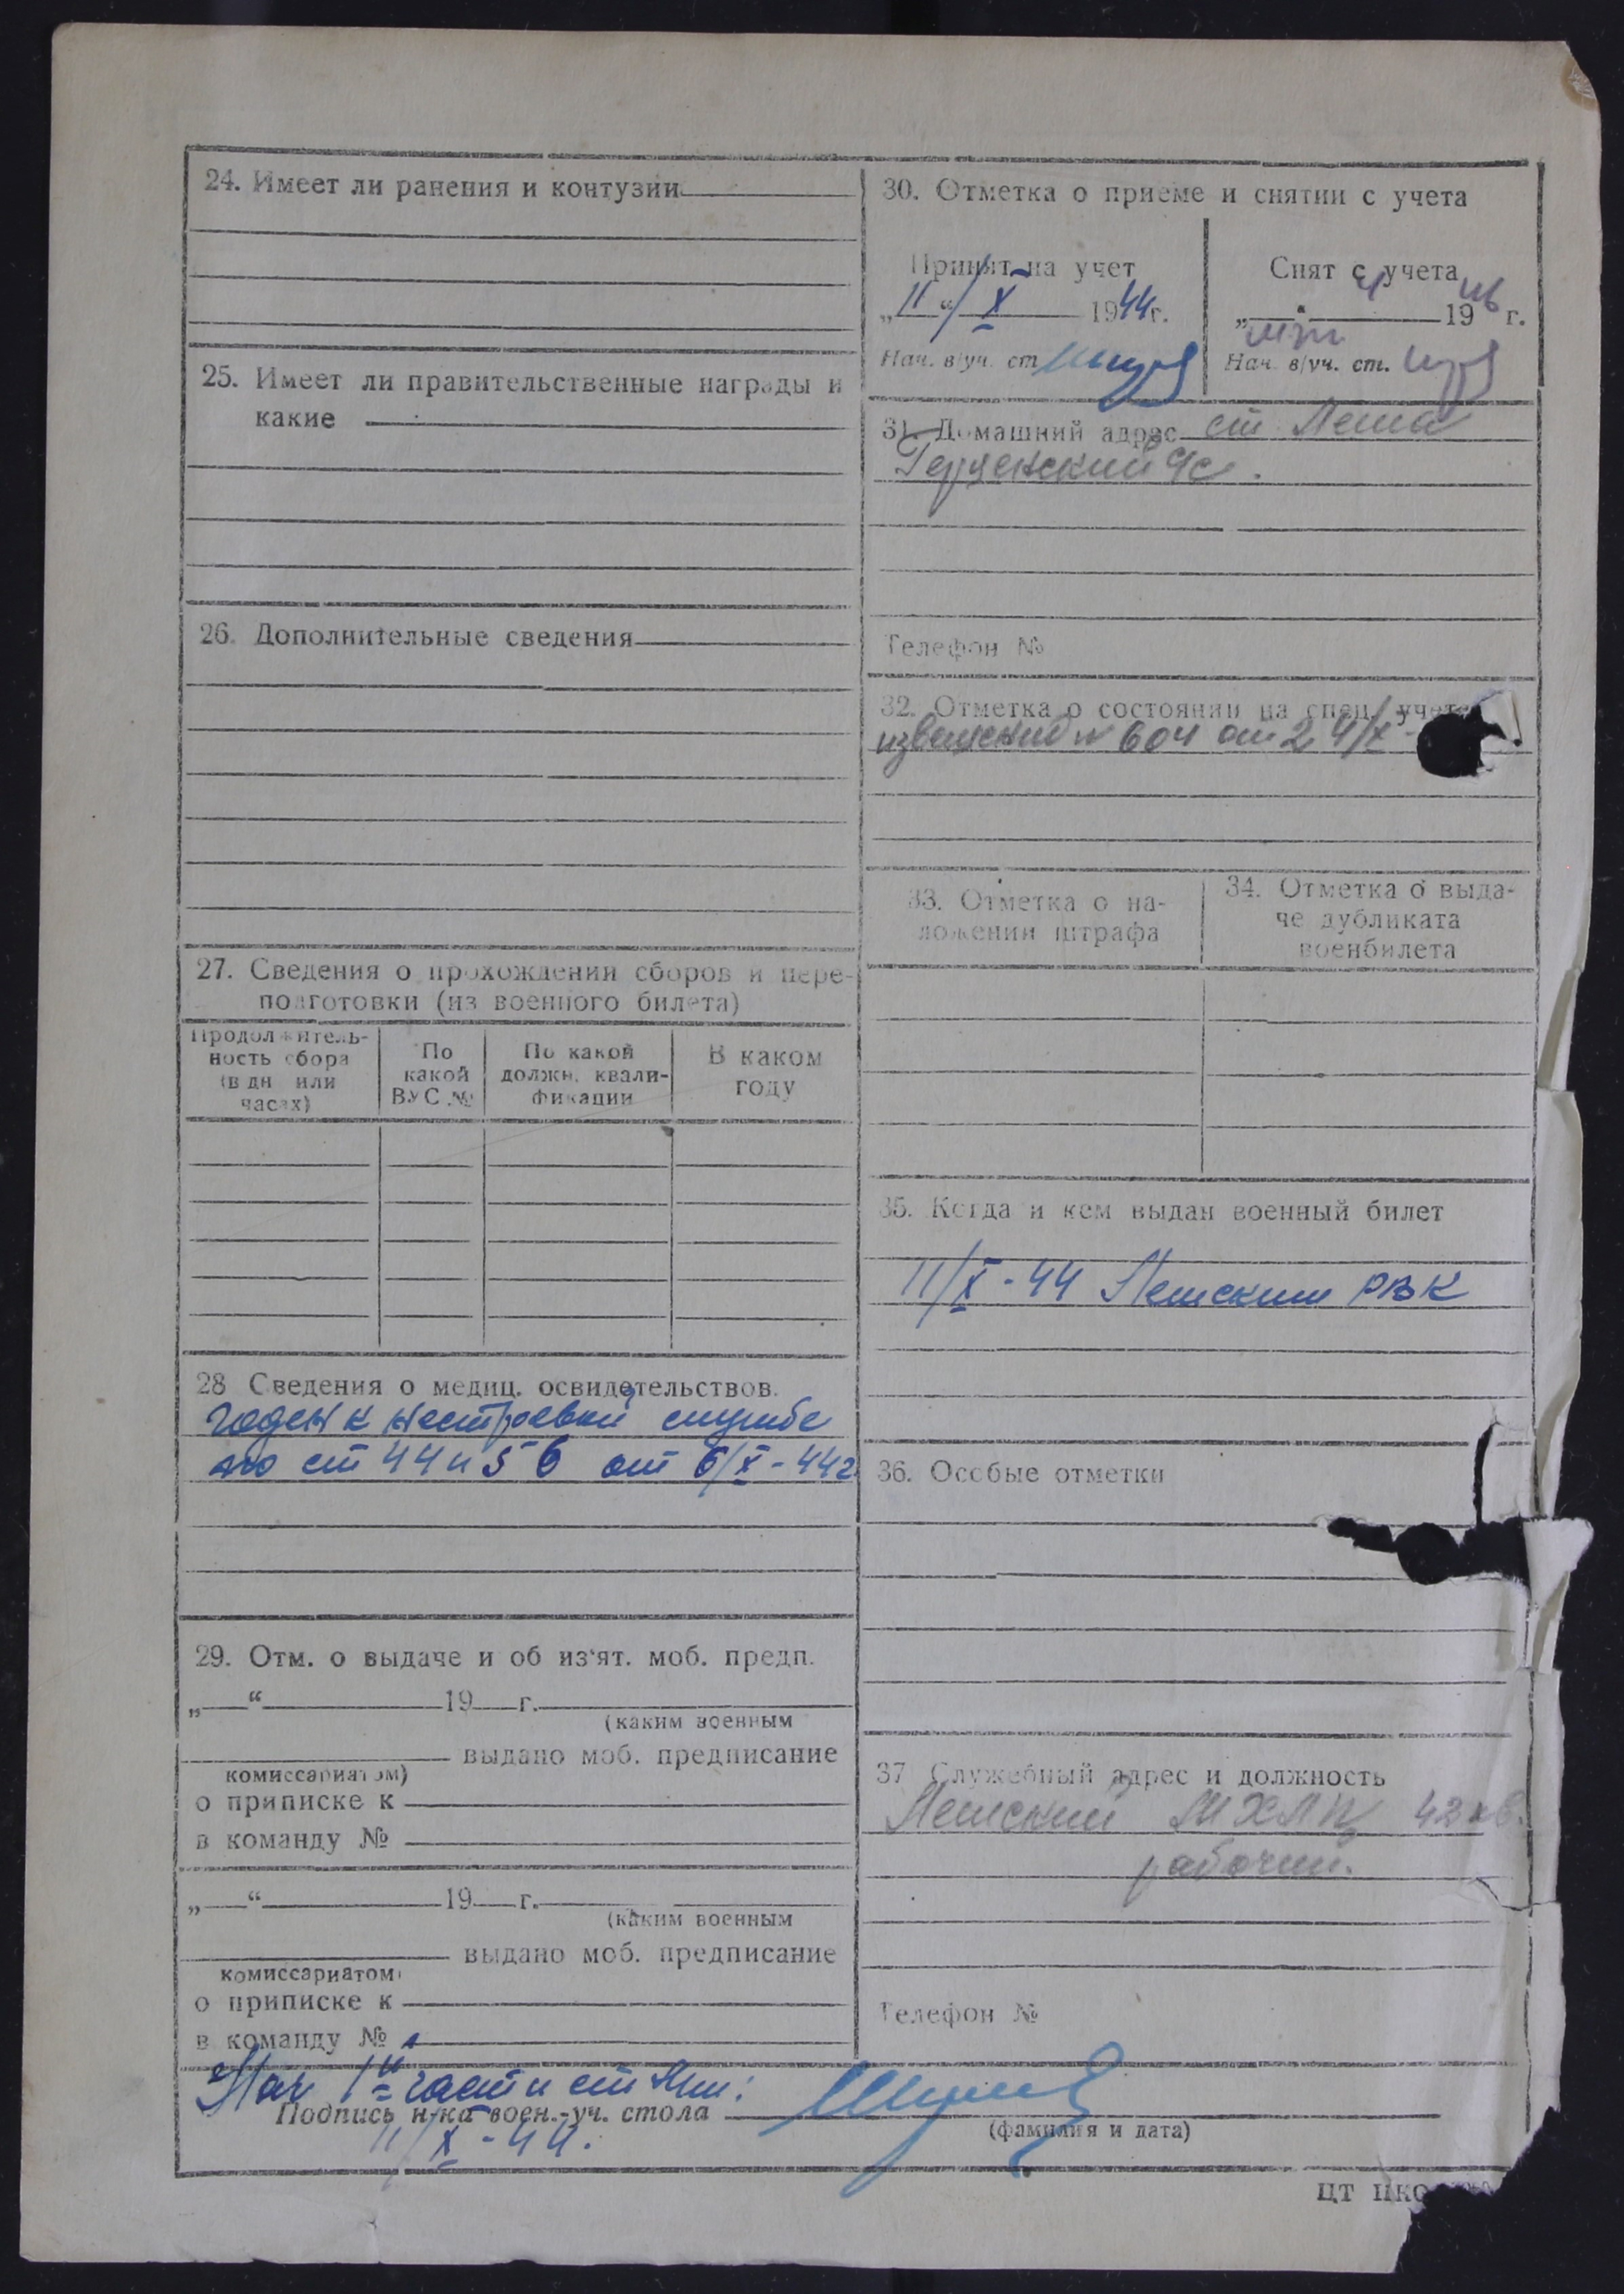 24. Имеет ли ранения и контузии
25. Имеет ли правительственные награды и
какие
26. Дополнительные сведения
27. Сведения о прохождении сборов и пере-
подготовки (из военного билета)
Продолжитель-
ность сбора
(в дн или
часах)
По
какой
ВУС №
По какой
должн. квали-
фикации
В каком
году
28 Сведения о медиц. освидетельствов.
годен к нестроевой службе
по ст 44 и 56 от 6/X-44г
29. Отм. о выдаче и об из'ят. моб. предп.
„ “ 19 г.
(каким военным
выдано моб. предписание
комиссариатом)
о приписке к
в команду №
„ “ 19 г.
(каким военным
выдано моб. предписание
комиссариатом)
о приписке к
в команду №
30. Отметка о приеме и снятии с учета
Принят на учет
„11“/X 1944г.
Нач. в/уч. ст
Снят с учета
„ “ 1946 г.
Нач. в/уч. ст.
31. Домашний адрес ст Леша
32. Отметка о состоянии на спец. учете
извещение № 604 от 24/X-
33. Отметка о на-
ложении штрафа
34. Отметка о выда-
че дубликата
военбилета
35. Когда и кем выдан военный билет
11/X-44 Лешским РВК
36. Особые отметки
37 Служебный адрес и должность
Лешский 42 кв.
рабочий.
Телефон №
Телефон №
Нач 1й части ст
Подпись н-ка воен.-уч. стола
(фамилия и дата)
11/X-44.